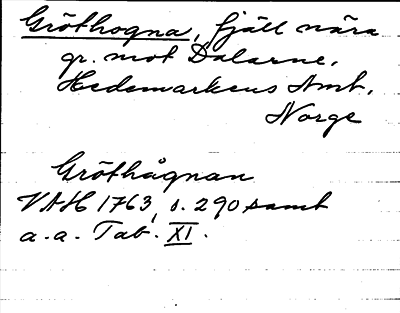 Gröthogna, fjäll nära
gr. mot Dalarne,
Hedemarkens Amt,
Norge
Gröthågnan
VAH 1763, s. 290 samt
a.a. Tab. XI.